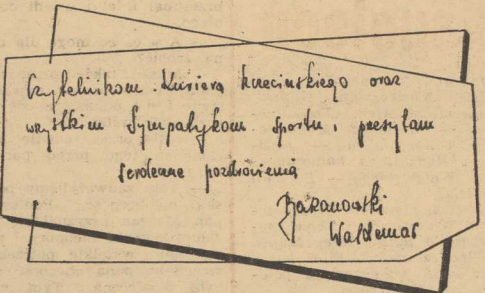 Czytelnikom Kuriera Szczecińskiego oraz
wszystkim Sympatykom sportu, przesyłam
serdeczne pozdrowienia
Baranowski
Waldemar